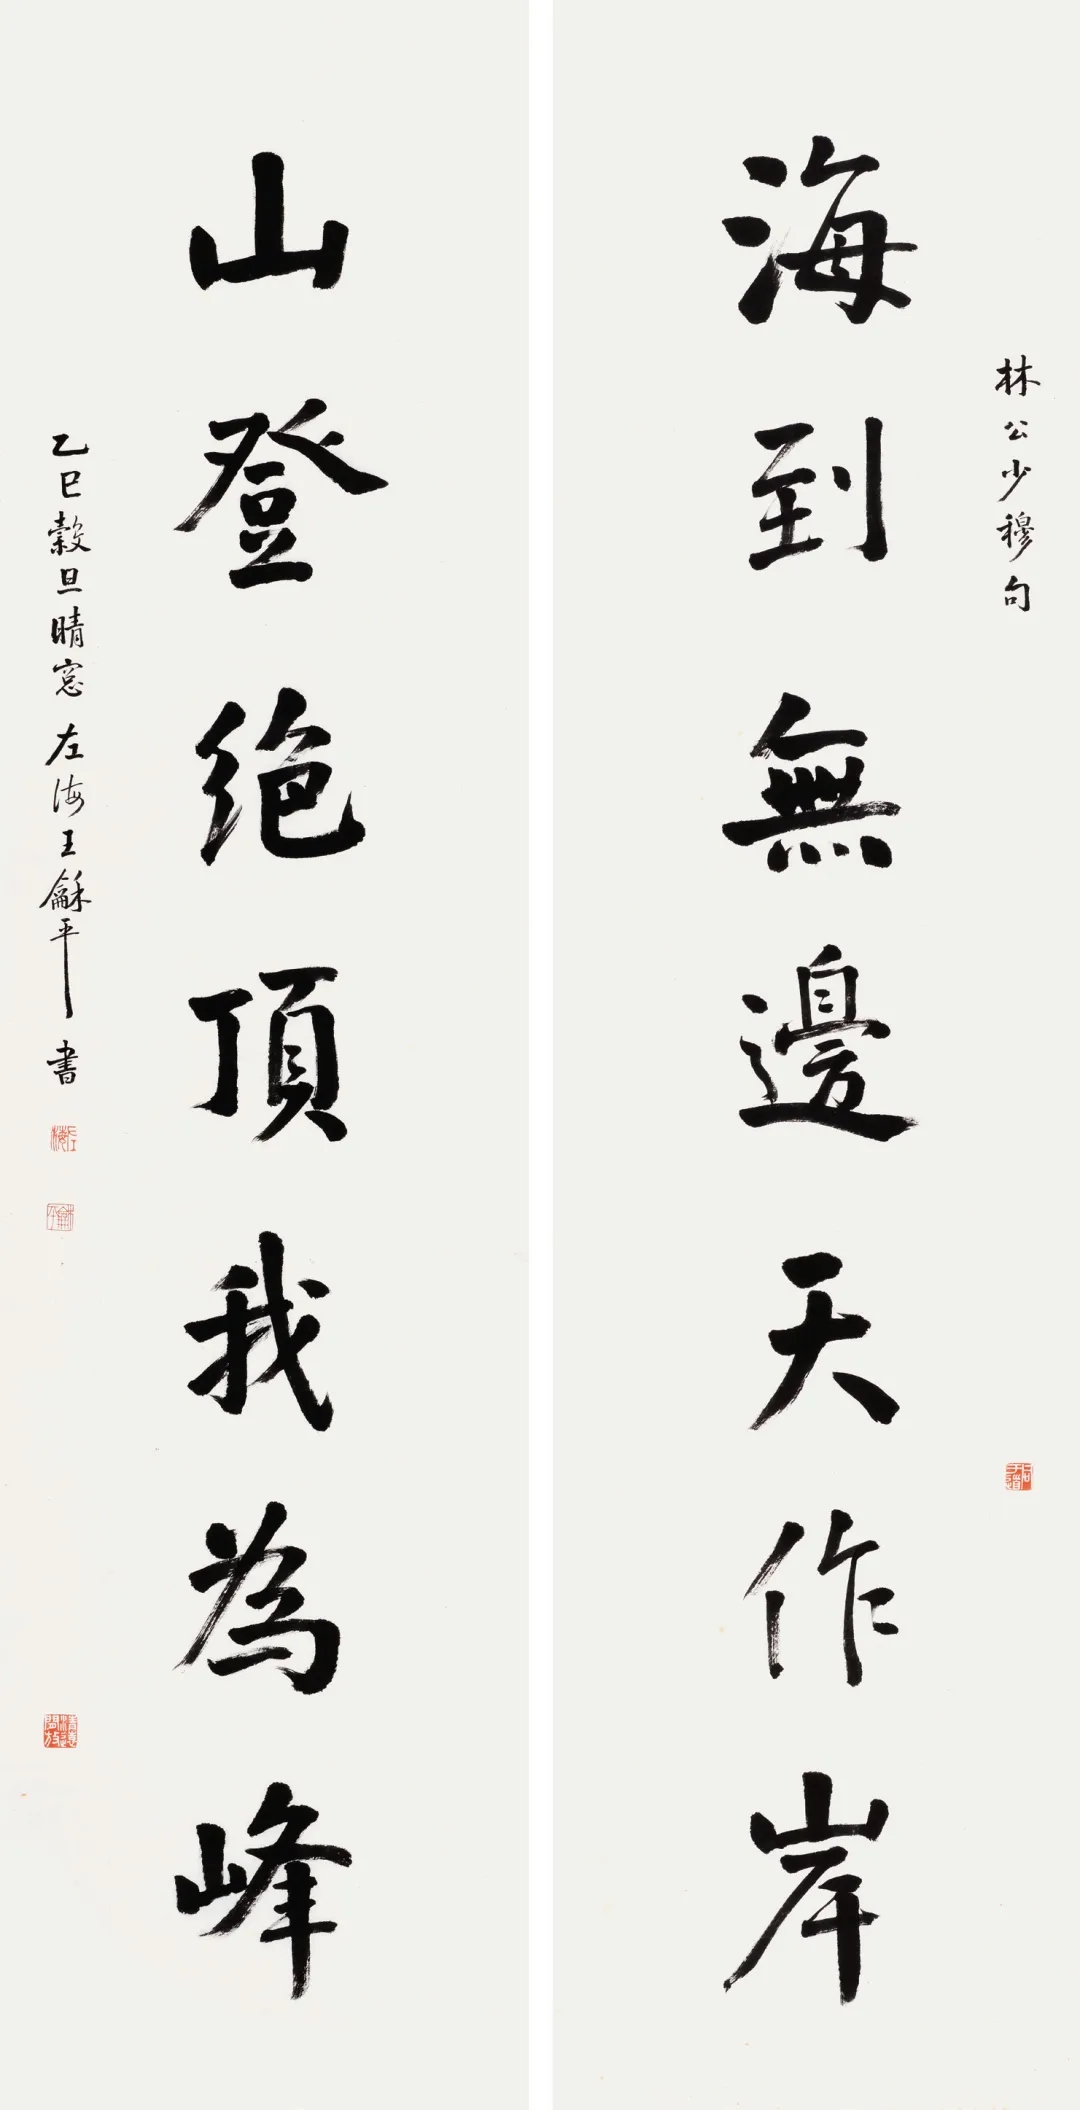 林公少穆句
海到無邊天作岸
山登絶頂我為峰
乙巳穀旦晴窓左海王龢平書
左海
龢平